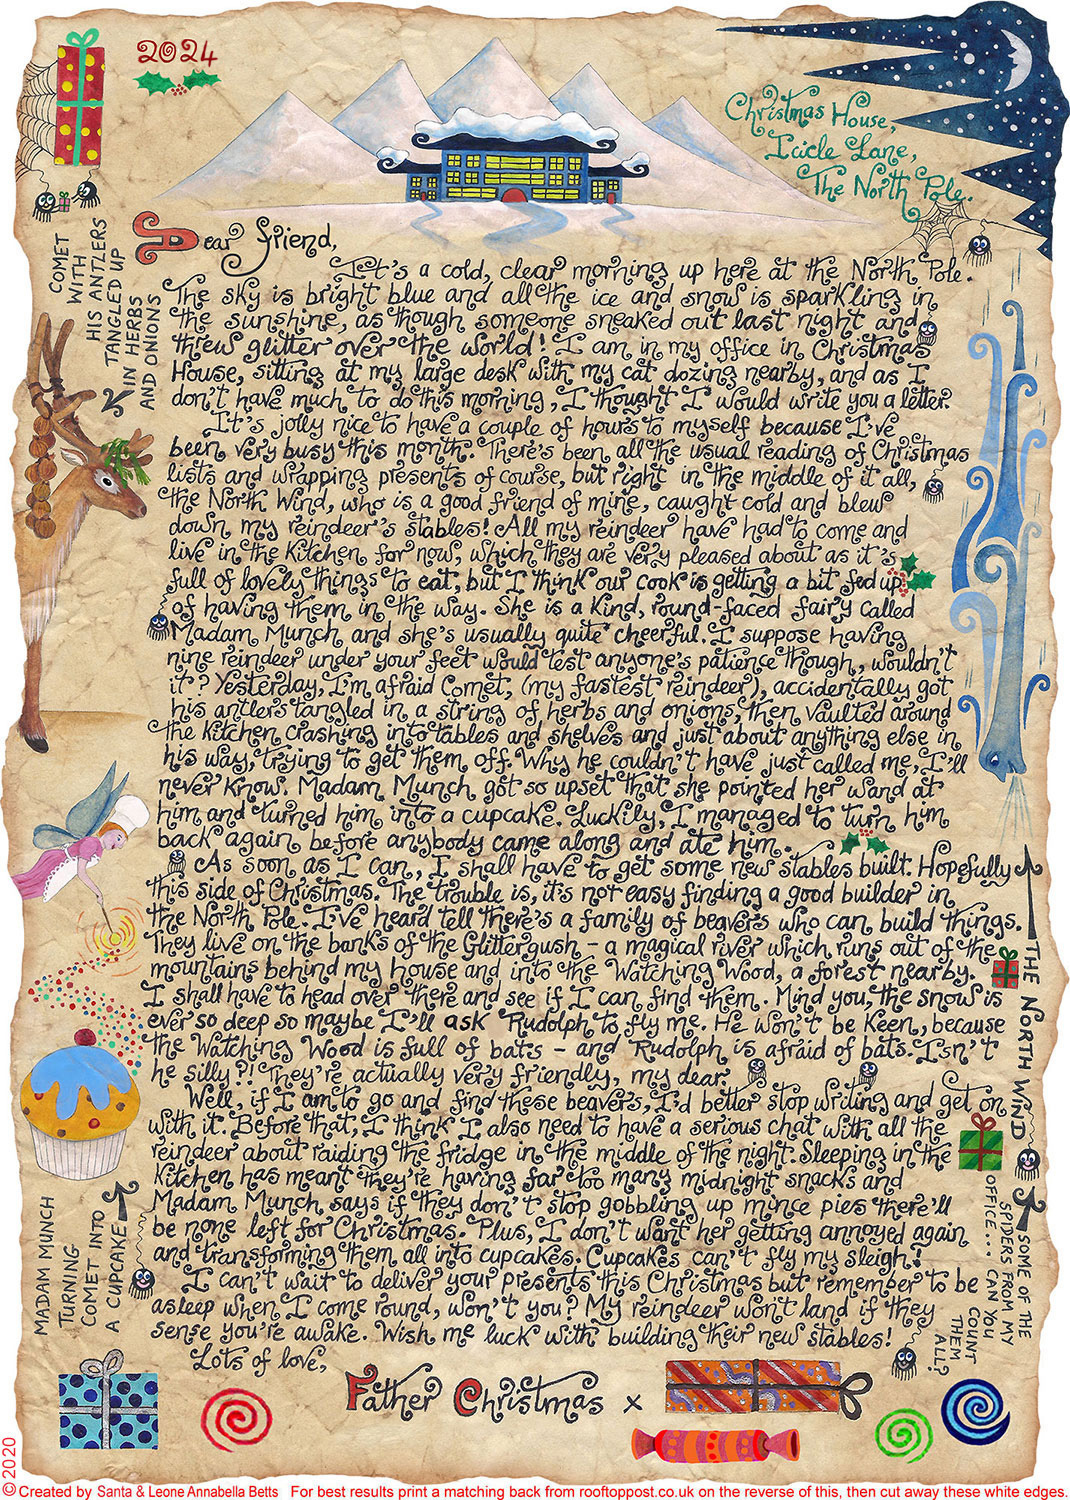 2024
Christmas House,
Icicle Lane,
The North Pole.
COMET
WITH
HIS ANTLERS
TANGLED UP
IN HERBS
AND ONIONS
Dear friend,
It's a cold, clear morning up here at the North Pole.
The sky is bright blue and all the ice and snow is sparkling in
the sunshine, as though someone sneaked out last night and
threw glitter over the world! I am in my office in Christmas
House, sitting at my large desk with my cat dozing nearby, and as I
don't have much to do this morning, I thought I would write you a letter.
It's jolly nice to have a couple of hours to myself because I've
been very busy this month. There's been all the usual reading of Christmas
lists and wrapping presents of course, but right in the middle of it all,
the North Wind, who is a good friend of mine, caught cold and blew
down my reindeer's stables! All my reindeer have had to come and
live in the kitchen, for now, which they are very pleased about as it's
full of lovely things to eat, but I think our cook is getting a bit fed up
of having them in the way. She is a kind, round-faced fairy called
Madam Munch and she's usually quite cheerful. I suppose having
nine reindeer under your feet would test anyone's patience though, wouldn't
it? Yesterday, I'm afraid Comet, (my fastest reindeer), accidentally got
his antlers tangled in a string of herbs and onions, then vaulted around
the kitchen, crashing into tables and shelves and just about anything else in
his way, trying to get them off. Why he couldn't have just called me, I'll
never know. Madam Munch got so upset that she pointed her wand at
him and turned him into a cupcake. Luckily, I managed to turn him
back again before anybody came along and ate him.
As soon as I can, I shall have to get some new stables built. Hopefully
this side of Christmas. The trouble is, it's not easy finding a good builder in
the North Pole. I've heard tell there's a family of beavers who can build things.
They live on the banks of the Glittergush - a magical river which runs out of the
mountains behind my house and into the Watching Wood, a forest nearby.
I shall have to head over there and see if I can find them. Mind you, the snow is
ever so deep so maybe I'll ask Rudolph to fly me. He won't be keen, because
the Watching Wood is full of bats - and Rudolph is afraid of bats. Isn't
he silly?! They're actually very friendly, my dear.
Well, if I am to go and find these beavers, I'd better stop writing and get on
with it. Before that, I think I also need to have a serious chat with all the
reindeer about raiding the fridge in the middle of the night. Sleeping in the
kitchen has meant they're having far too many midnight snacks and
Madam Munch says if they don't stop gobbling up mince pies there'll
be none left for Christmas. Plus, I don't want her getting annoyed again
and transforming them all into cupcakes. Cupcakes can't fly my sleigh!
I can't wait to deliver your presents this Christmas but remember to be
asleep when I come round, won't you? My reindeer won't land if they
sense you're awake. Wish me luck with building their new stables!
Lots of love,
Father Christmas x
THE NORTH WIND
SOME OF THE
SPIDERS FROM MY
OFFICE... CAN YOU
COUNT
THEM
ALL?
MADAM MUNCH
TURNING
COMET INTO
A CUPCAKE
© Created by Santa & Leone Annabella Betts For best results print a matching back from rooftoppost.co.uk on the reverse of this, then cut away these white edges.
2020